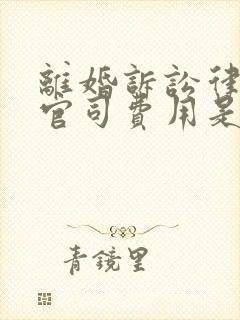 離婚訴訟律
官司費用是
青鏡里